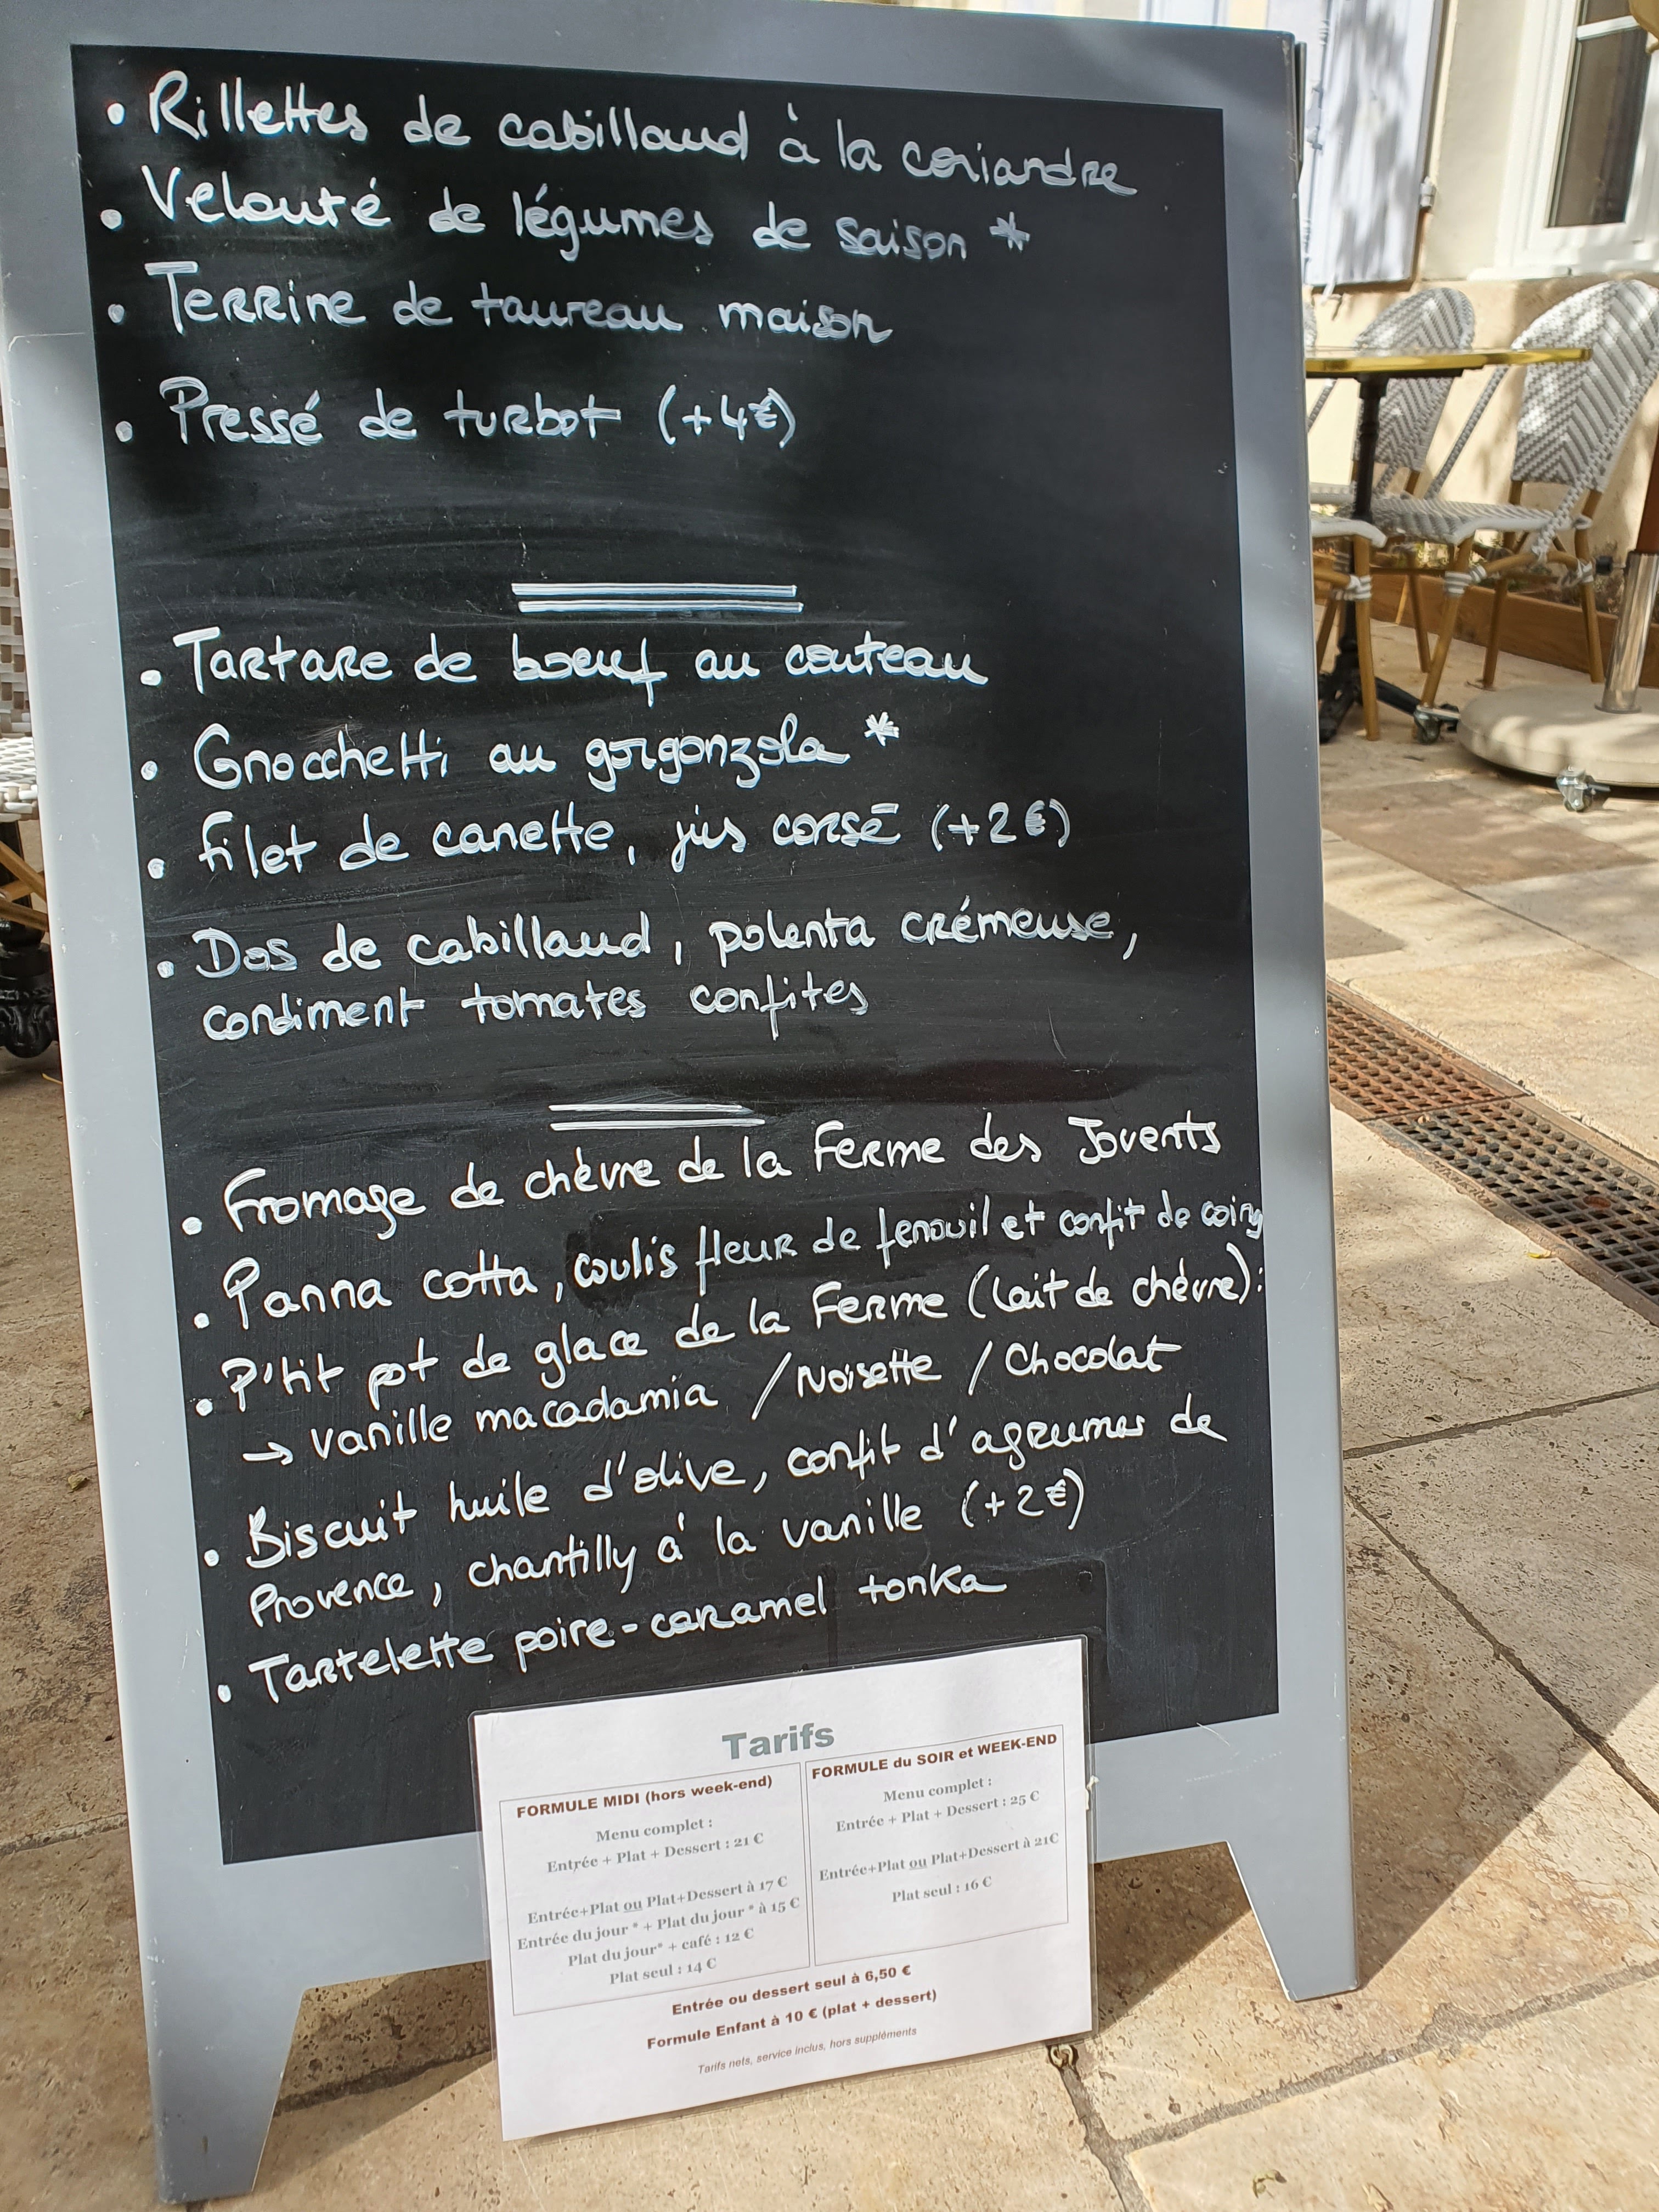 • Rillettes de cabillaud à la coriandre
• Velouté de légumes de saison *
• Terrine de taureau maison
• Pressé de turbot (+4€)
• Tartare de boeuf au couteau
• Gnocchetti au gorgonzola *
• Filet de canette, jus corsé (+2€)
• Dos de cabillaud, polenta crémeuse,
condiment tomates confites
• Fromage de chèvre de la Ferme des Jovents
• Panna cotta, coulis fleur de fenouil et confit de coing
• P'tit pot de glace de la Ferme (lait de chèvre):
→ vanille macadamia / Noisette / Chocolat
• Biscuit huile d'olive, confit d'agrumes de
Provence, chantilly à la vanille (+2€)
• Tartelette poire-caramel tonka
Tarifs
FORMULE MIDI (hors week-end)
Menu complet :
Entrée + Plat + Dessert : 21 €
Entrée+Plat ou Plat+Dessert à 17 €
Entrée du jour * + Plat du jour * à 15 €
Plat du jour* + café : 12 €
Plat seul : 14 €
FORMULE du SOIR et WEEK-END
Menu complet :
Entrée + Plat + Dessert : 25 €
Entrée+Plat ou Plat+Dessert à 21€
Plat seul : 16 €
Entrée ou dessert seul à 6,50 €
Formule Enfant à 10 € (plat + dessert)
Tarifs nets, service inclus, hors suppléments